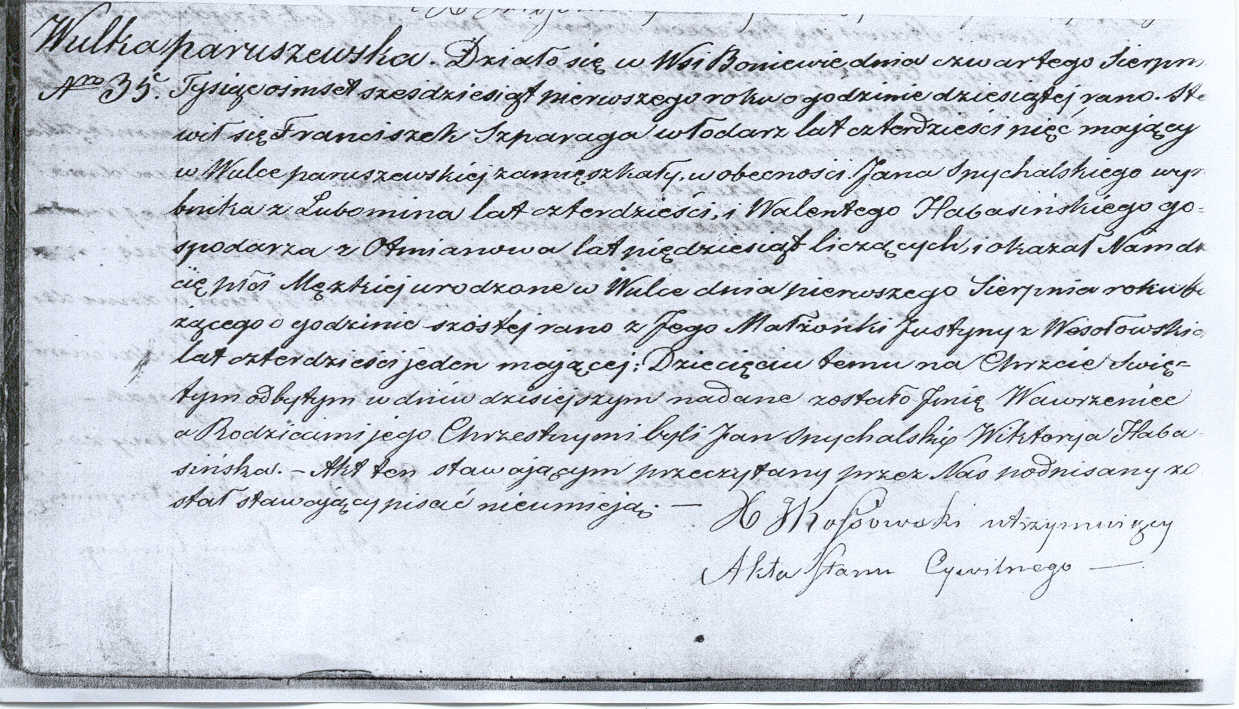 Wulka paruszewska. Działo się w Wsi Boniewie dnia czwartego Sierpn
Nro 35. Tysiąc ośmset sześdziesiąt pierwszego roku o godzinie dziesiątej rano. Sta
wił się Franciszek Szparaga włodarz lat czterdzieści pięć mający
w Wulce paruszewskiej zamięszkały, w obecności Jana Spychalskiego wyr
bnika z Lubomina lat czterdzieści, i Walentego Habasińskiego go-
spodarza z Otmianowa lat piędziesiąt liczących, i okazał Nam dz
cię płci Męzkiej urodzone w Wulce dnia pierwszego Sierpnia roku be
żącego o godzinie szóstej rano z Jego Małżonki Justyny z Wesołowskic
lat czterdzieści jeden mającej; Dziecięciu temu na Chrzcie Swię=
tym odbytym w dniu dzisiejszym nadane zostało Jmię Wawrzeniec
a Rodzicami jego Chrzestnymi byli Jan Spychalski Wiktorya Haba-
sińska. – Akt ten stawającym przeczytany przez Nas podpisany zo
stał stawający pisać nieumieją. —
X J Kossowski utrzymuiący
Akta Stanu Cywilnego —